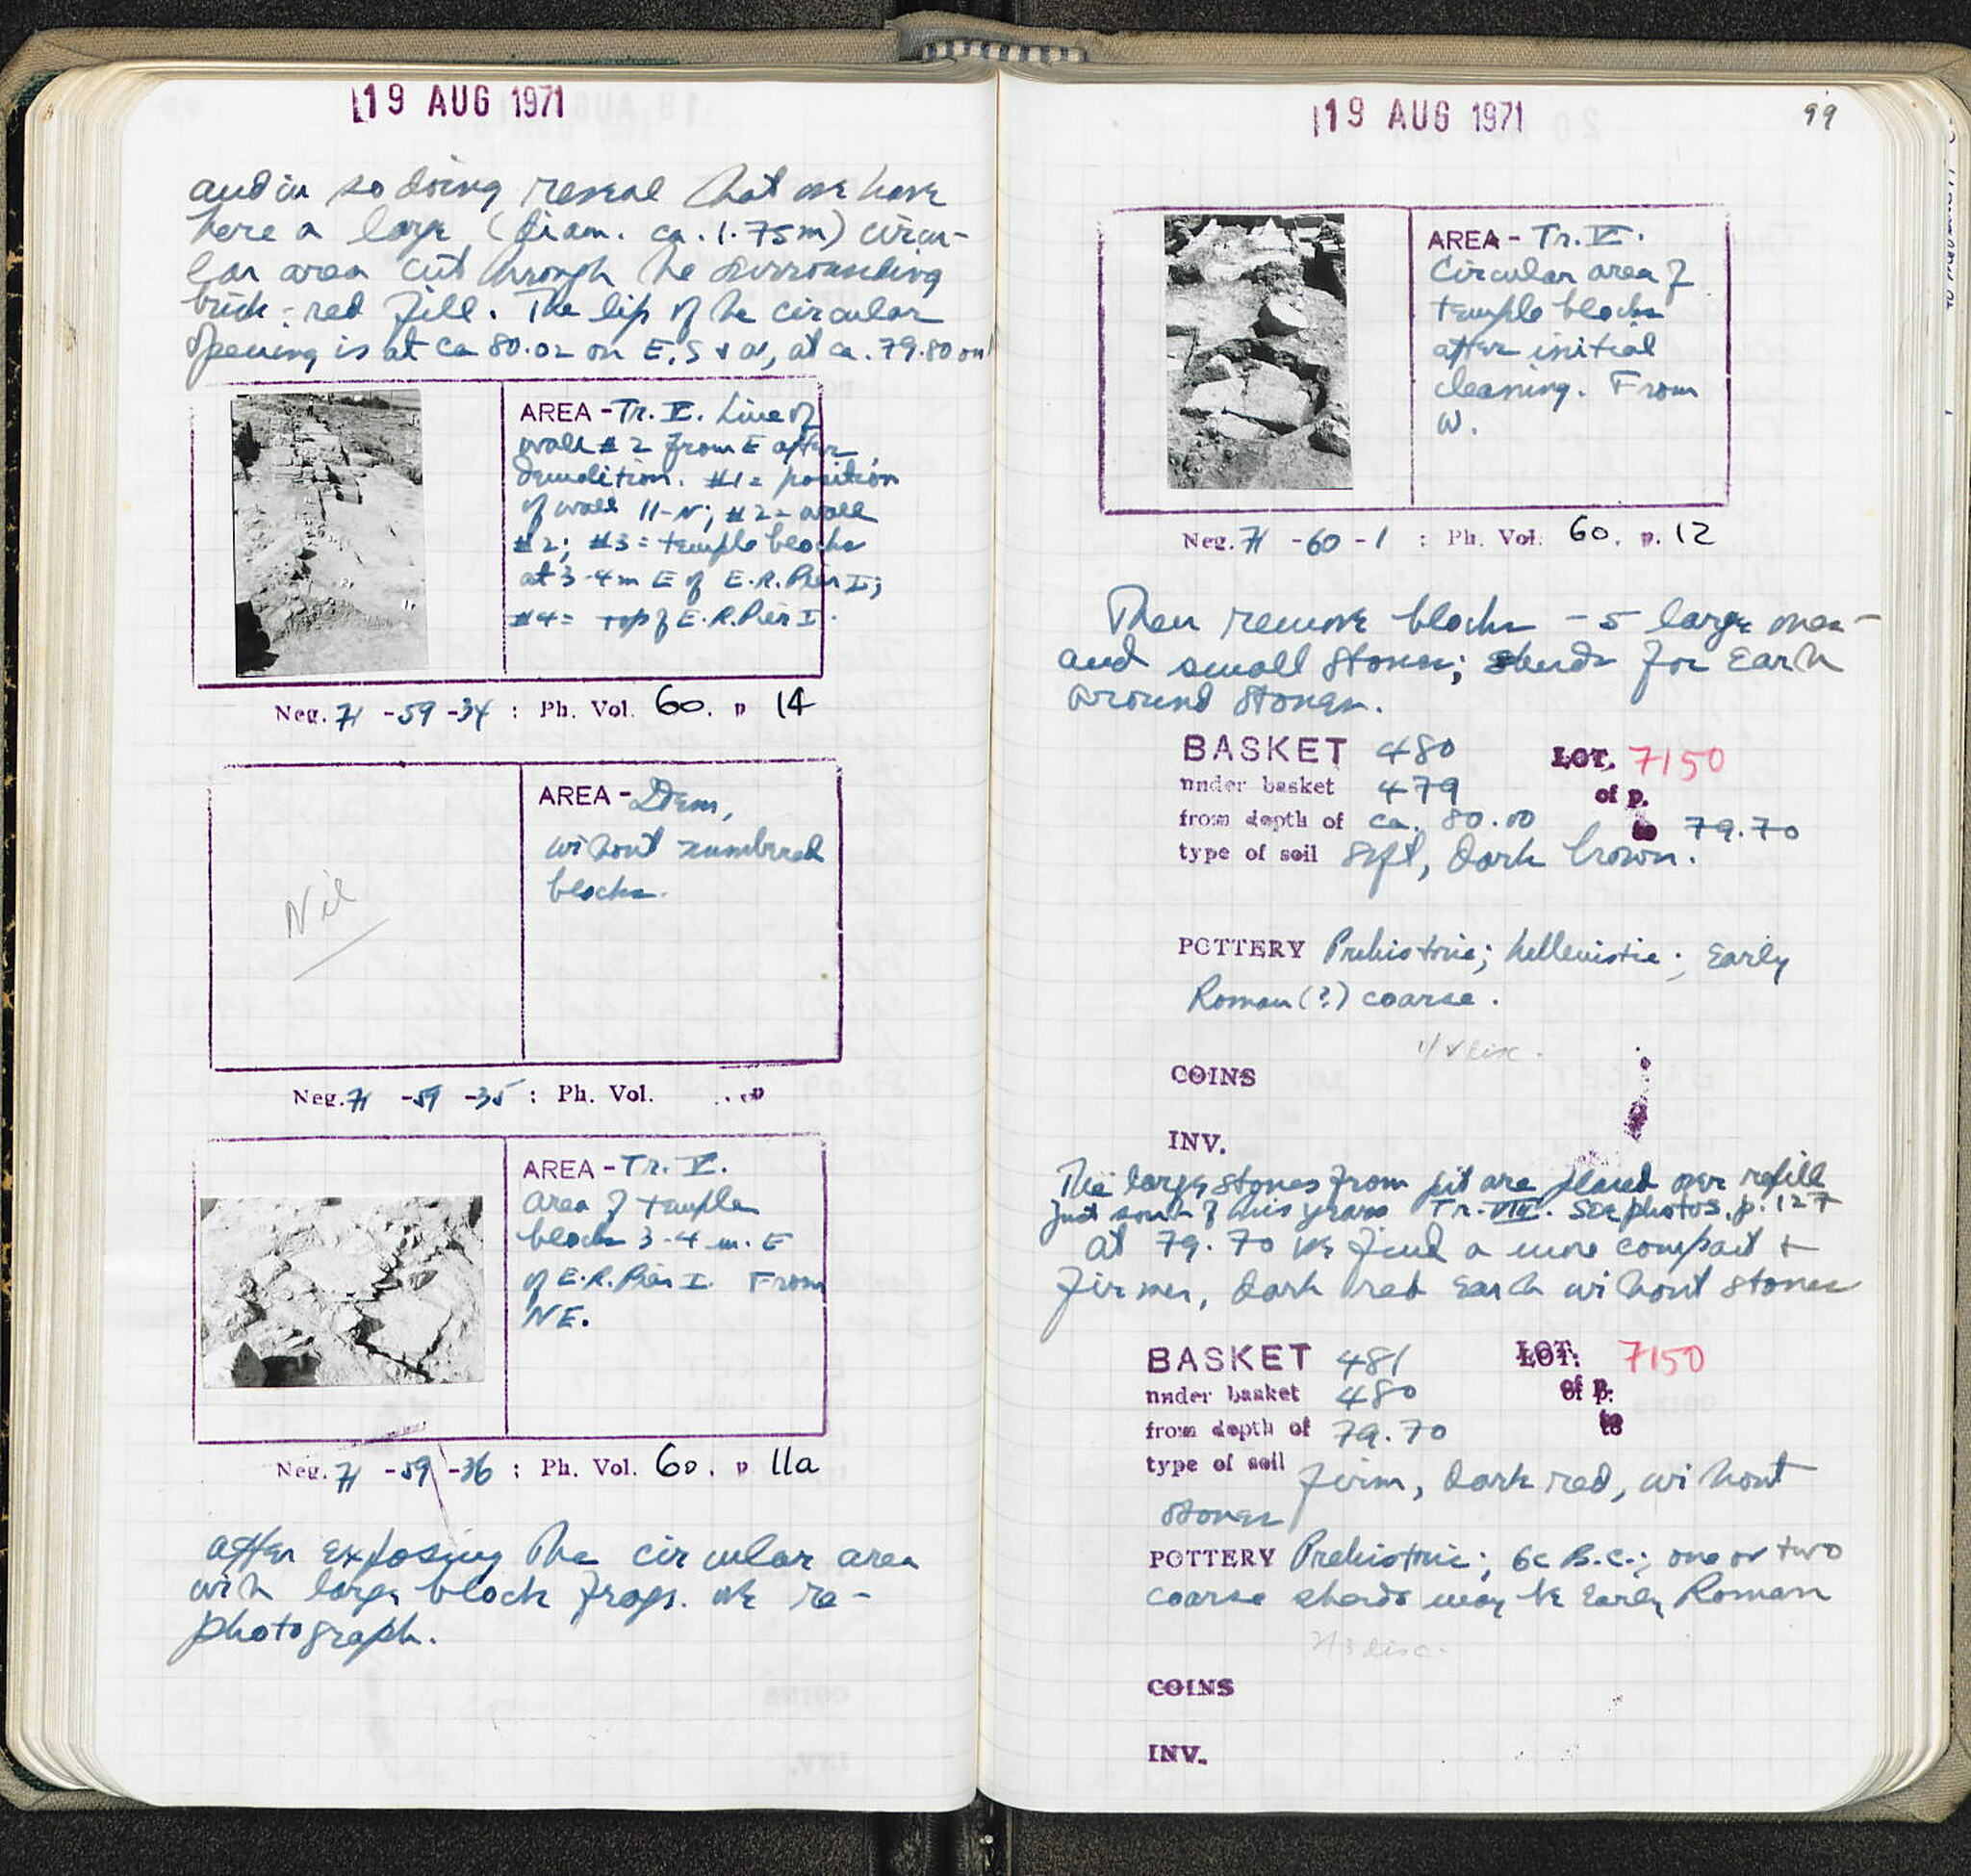 19 AUG 1971
and in so doing reveal that we have
here a large (diam. ca. 1.75m) circu-
lar area cut through the surrounding
brick-red fill. The lip of the circular
opening is at ca 80.02 on E, S + W, at ca. 79.80 on
AREA - Tr. V. Line of
wall #2 from E after
demolition. #1 = position
of wall 11-N; #2 = wall
#2; #3 = temple blocks
at 3-4m E of E.R. Pier I;
#4 = top of E.R. Pier I.
Neg. 71 -59 -34 : Ph. Vol. 60. p 14
AREA - Idem,
without numbered
blocks.
Nil
Neg. 71 -59 -35 : Ph. Vol. p
AREA - Tr. V.
Area of temple
blocks 3-4 m. E
of E.R. Pier I. From
NE.
Neg. 71 -59 -36 : Ph. Vol. 60. p 11a
After exposing the circular area
with large block frags. we re-
photograph.
19 AUG 1971
99
AREA - Tr. V.
Circular area of
temple blocks
after initial
cleaning. From
W.
Neg. 71 -60 -1 : Ph. Vol. 60. p. 12
Then remove blocks - 5 large ones -
and small stones; sherds for earth
around stones.
BASKET 480 LOT. 7150
under basket 479 of p.
from depth of ca. 80.00 to 79.70
type of soil soft, dark brown.
POTTERY Prehistoric; hellenistic; Early
Roman (?) coarse.
COINS
INV.
The large stones from pit are placed over refill
just south of this years Tr. VIII. See photos, p. 127
At 79.70 we find a more compact +
firmer, dark red earth without stones
BASKET 481 LOT: 7150
under basket 480 of p.
from depth of 79.70 to
type of soil firm, dark red, without
stones
POTTERY Prehistoric; 6c B.C.; one or two
coarse sherds may be Early Roman
2/3 disc.
COINS
INV.